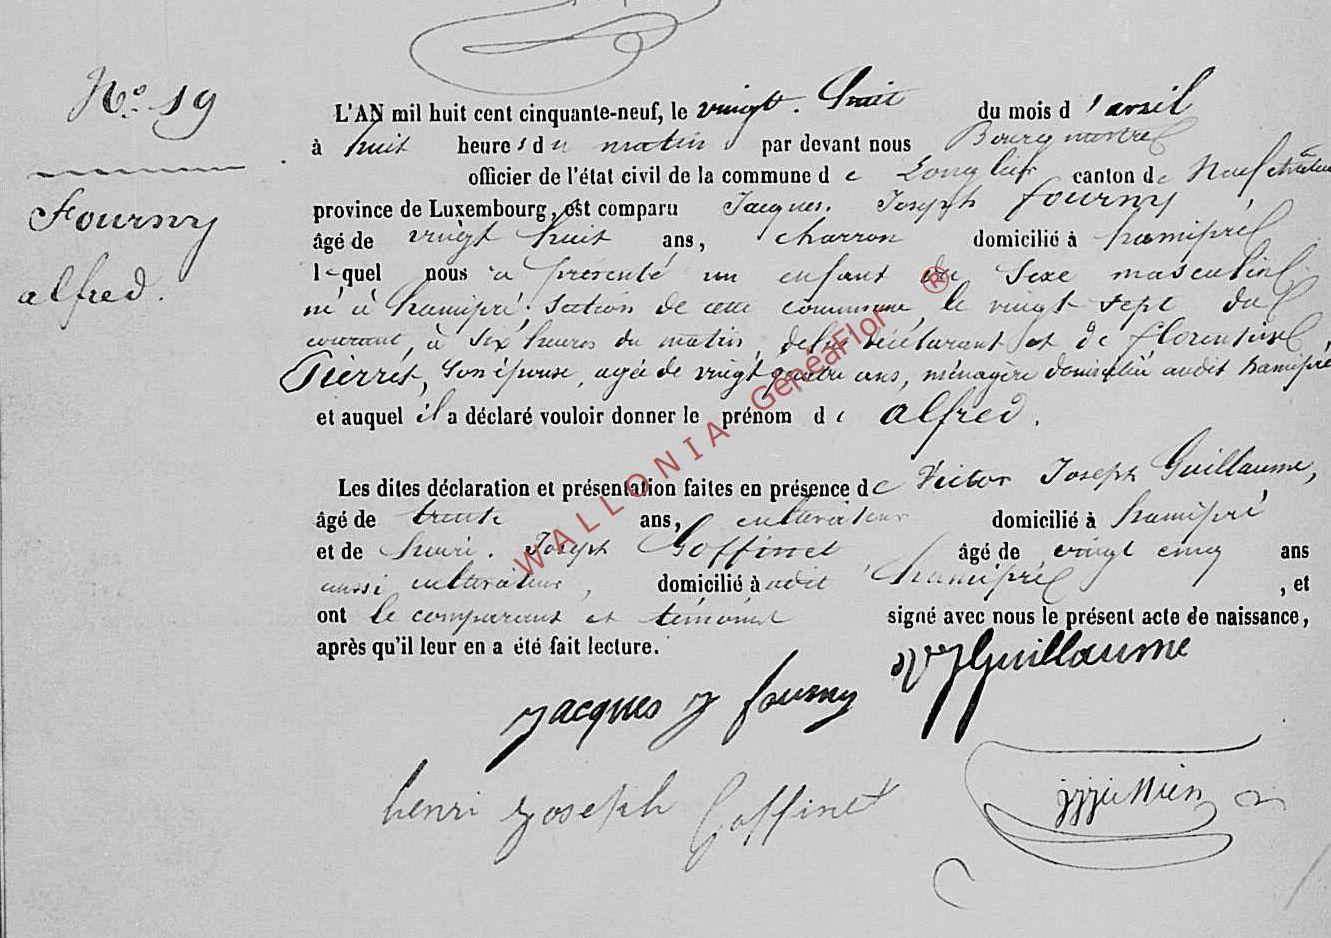 N° 19
Fourny
alfred.
L'AN mil huit cent cinquante-neuf, le vingt-huit du mois d'avril
à huit heures du matin par devant nous Bourgmestre
officier de l'état civil de la commune de Longlier canton de Neufchâteau
province de Luxembourg, est comparu Jacques Joseph fourny,
âgé de vingt huit ans, charron domicilié à hamipré
lequel nous a présenté un enfant du sexe masculin
né à hamipré, section de cette commune, le vingt sept du
courant, à six heures du matin, de lui déclarant et de florentine
Pierret, son épouse, agée de vingt quatre ans, ménagère domiciliée audit hamipré
et auquel il a déclaré vouloir donner le prénom de alfred.
Les dites déclaration et présentation faites en présence de Victor Joseph Guillaume,
âgé de trente ans, cultivateur domicilié à hamipré
et de henri Joseph Goffinet âgé de vingt cinq ans
aussi cultivateur, domicilié audit hamipré, et
ont le comparant et témoins signé avec nous le présent acte de naissance,
après qu'il leur en a été fait lecture.
WALLONIA GeneaFlor ®
jacques j fourny
Guillaume
henri joseph Goffinet